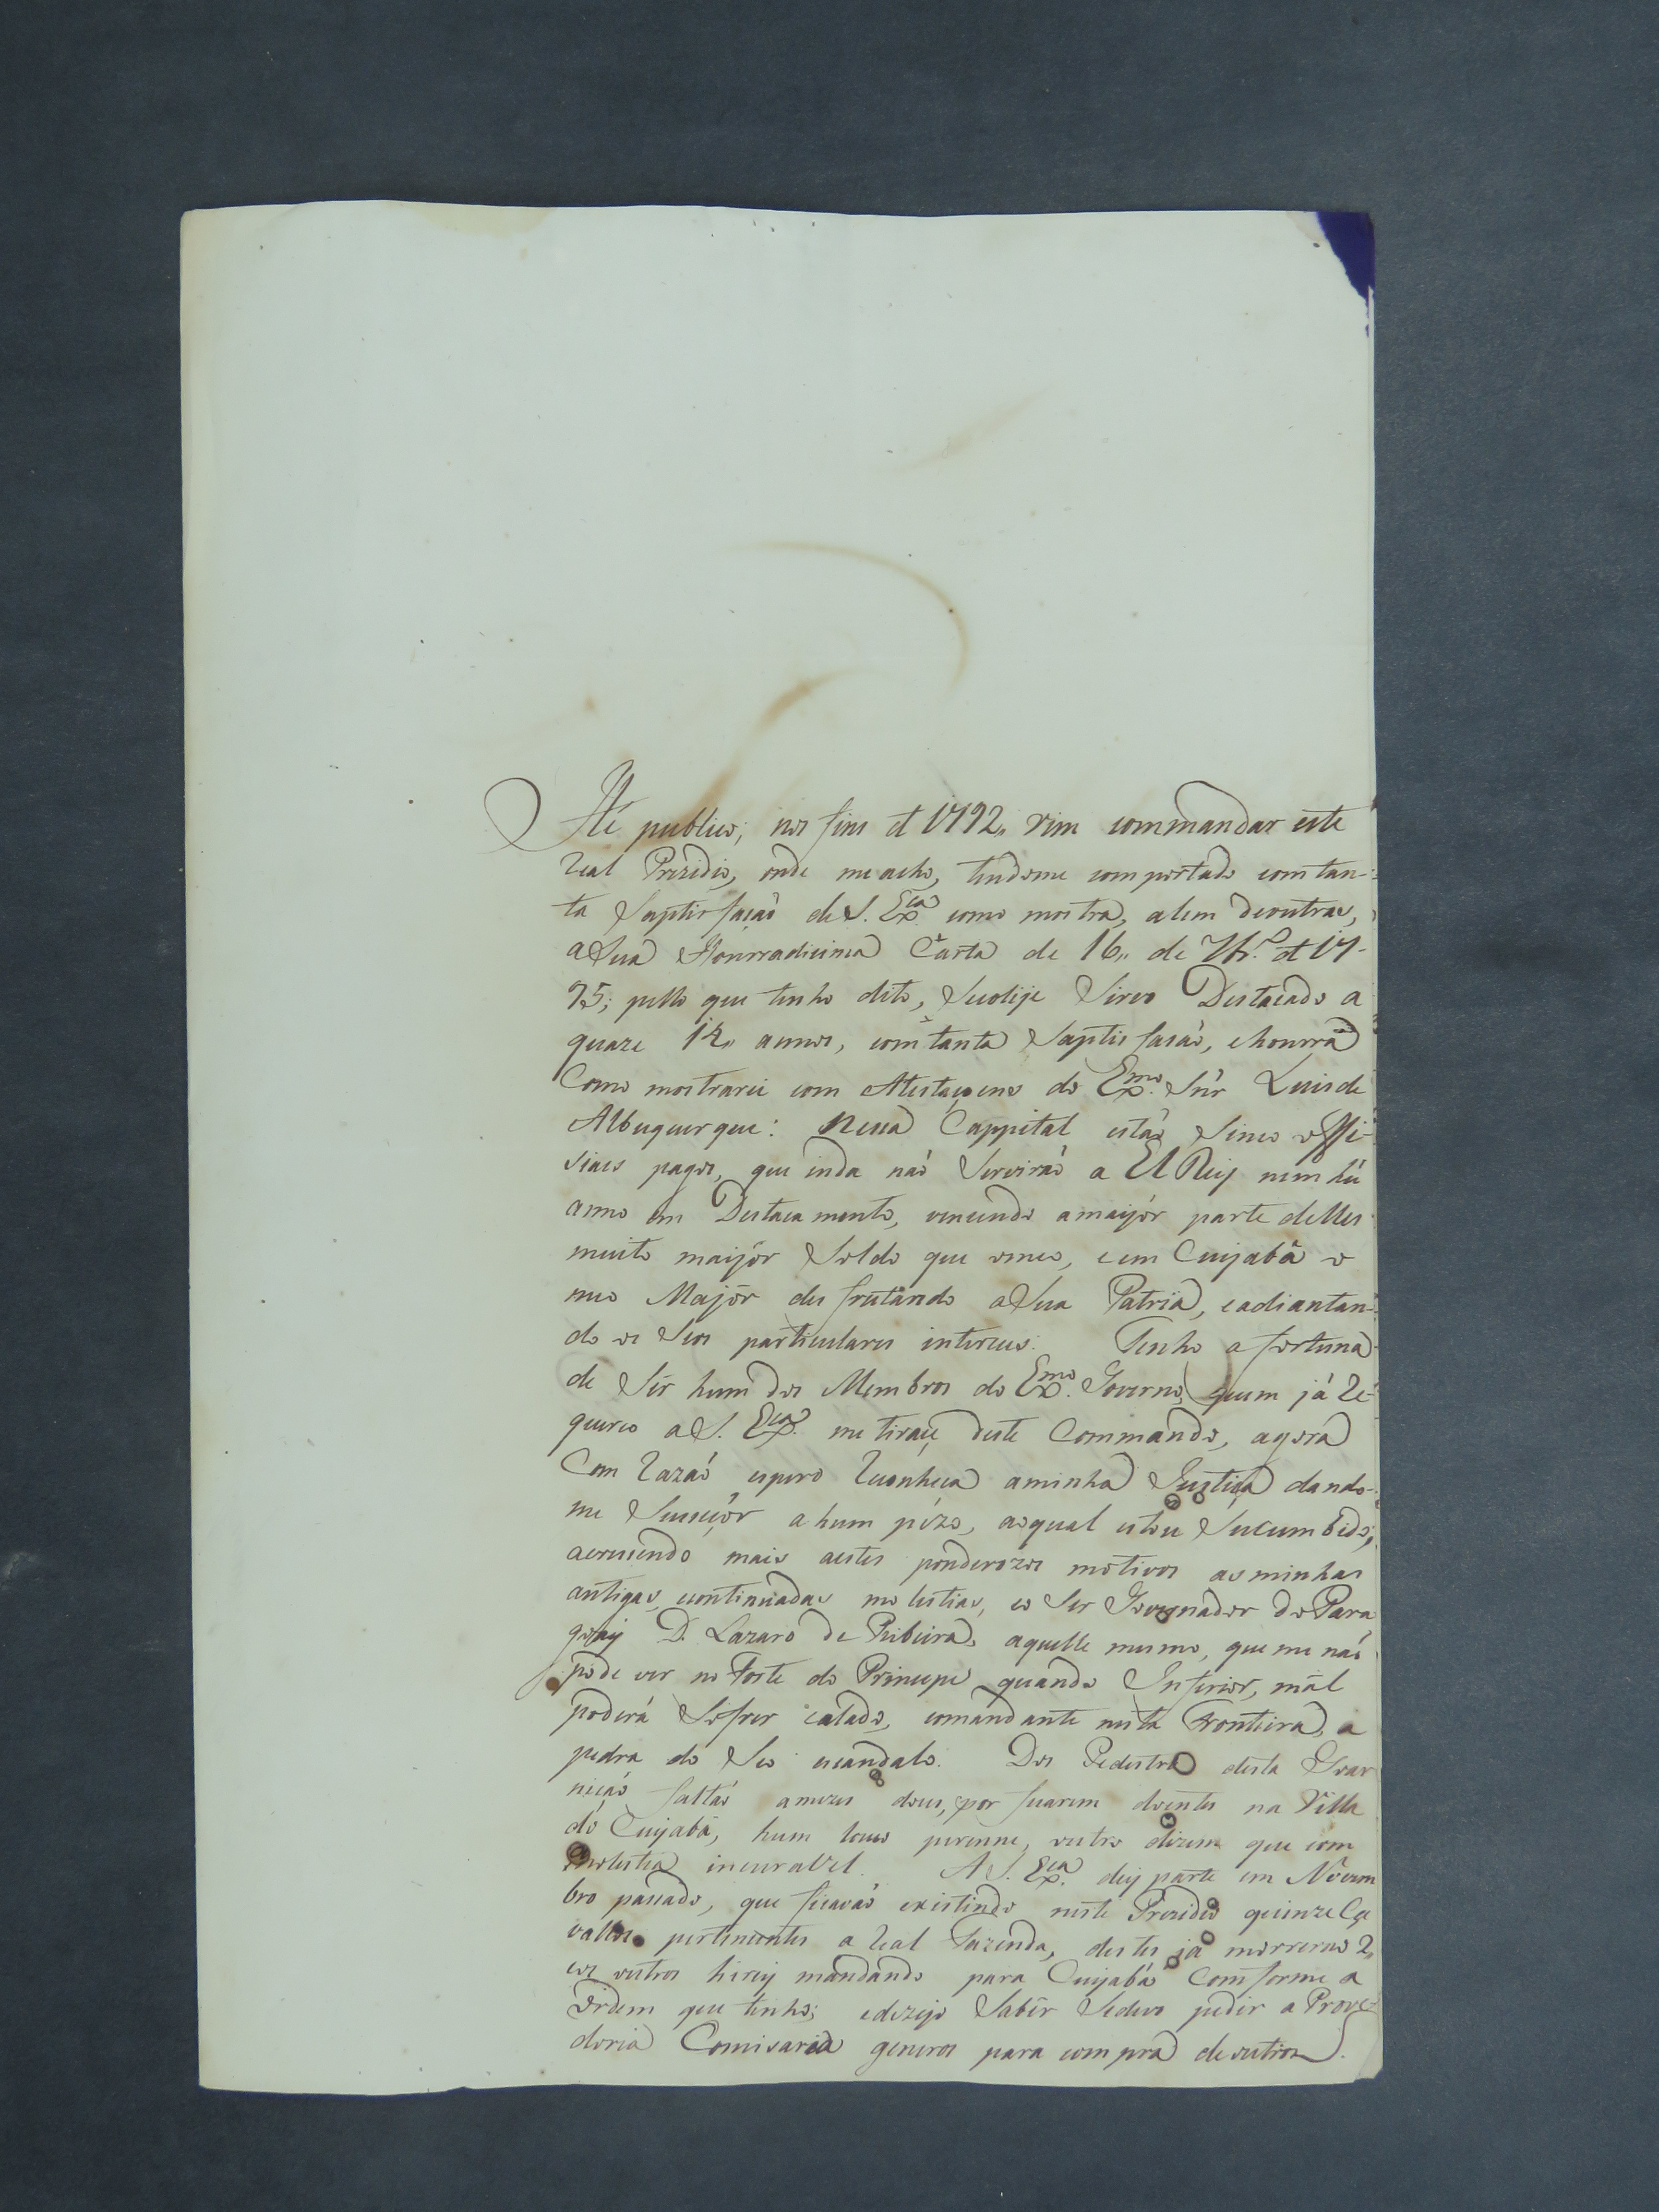 Hé publico; nos fins d 1792,, vim commandar este
Real Prezidio, onde me acho, tendome comportado com tan-
ta Saptisfaçaõ de S. Exª. como mostra, alem deoutras,
a Sua Honrradicima Carta de 16,, de 7br.º d 17-
95; pello que tenho dito, Secolije Sirvo Destacado a
quaze 12,, annos, com tanta Saptisfasaõ, ehonrra
Como mostrarei com Atestaçoens do Exmo. Snr Luis de
Albuquerque: Nessa Cappital estaõ Sinco offi-
siaes pagos, que inda naõ Serviraõ a El Rey nem hú
anno em Destacamento, vencendo amaijór parte delles
muito maijór Soldo que omeo, eem Cuijabá o
meo Majór desfrutando a Sua Patria, eadiantan-
do os Seos particulares intereces. Tenho a fortuna
de Sér hum dos Membros do Exmo. Governo, quem já Re-
quereo a S. Exª. me tiraçe deste Commando, agora
Com Razaõ espero Reconheca aminha Justiça dando-
me Sucessór a hum pézo, aoqual estou Sucumbido;
acrecendo mais aestes ponderozos motivos as minhas
antigas, econtinuadas molestias, eo Ser Governador do Para
goaij D. Lazaro de Ribeira, aquelle mesmo, que me naõ
pode ver no Forte do Principe quando Inferior, mál
poderá Sofrer calado, comandante nesta Fronteira, a
pedra do Seo escandalo. Dos Pedestres desta Goar
niçaõ faltaõ amezes dous, por ficarem doentes na Villa
do Cuijabá, hum louco perenne, outro dizem que com
molestia incuravel. A S. Exª. deij parte em Novem
bro passado, que ficavaõ existindo neste Prezidio quinze Ca
vallos pertencentes a Real Fazenda, destes já morreraõ 2,
eos outros hireij mandando para Cuijabá Comforme a
Ordem que tenho; edezejo Sabêr Sedevo pedir a Prove-
doria Comisaria generos para compra de outros.